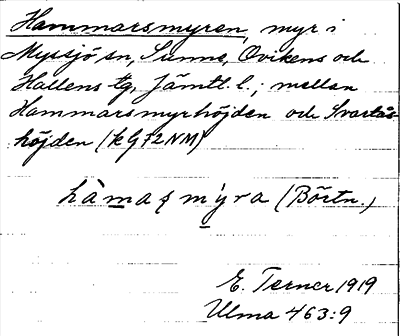 Hammarsmyren, myr i
Myssjö sn, Sunne, Ovikens och
Hallens tg, Jämtl. l.; mellan
Hammarsmyrhöjden och Svartås-
höjden (kG72NM)
(Börtn.)
E. Terner 1919
Ulma 463:9